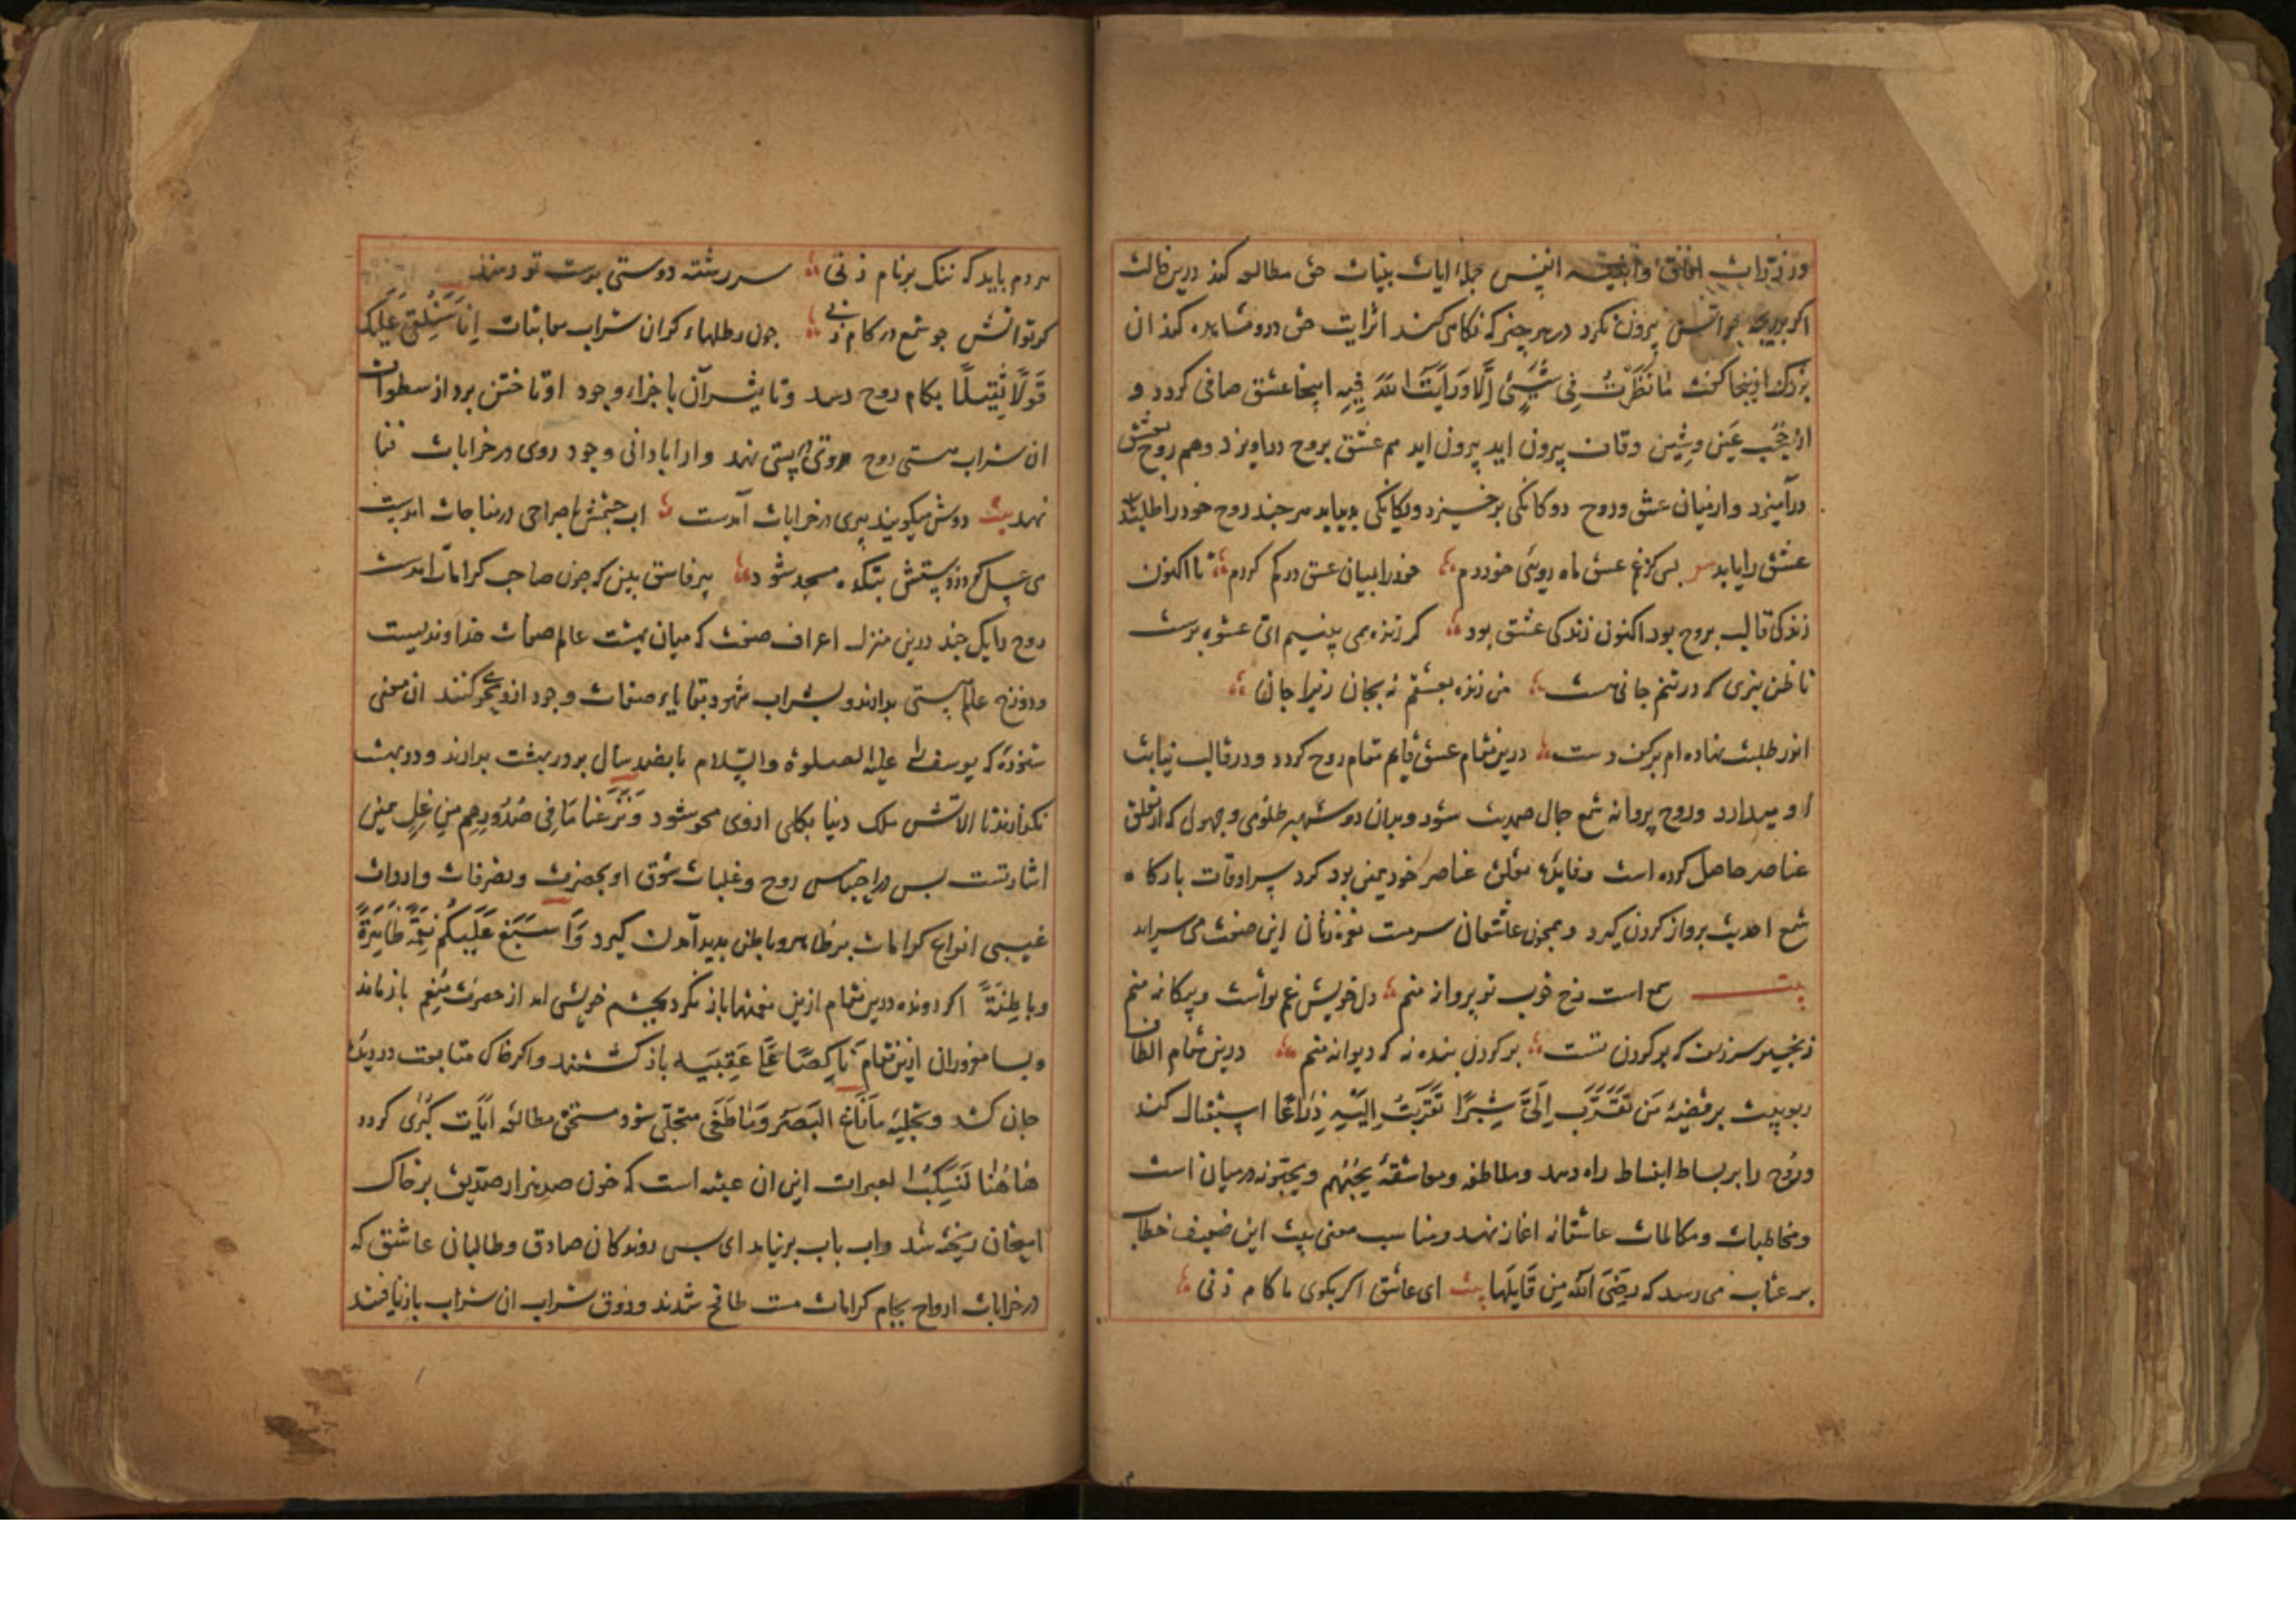 در ذرات افاق و ابنیه انفس جمله ایات بینات حق مطالعه کند درین حالت
اکر بدریچه حواس بیرون نکرد در هر چیز که نکاه می کند اثر ایت حق درو مشاهده کند ان
بزرک ازینجا کفت مَا نَظَرْتُ فِی شَیْیءٍ اِلَّا وَرَاَیْتُ اللهَ فِیهِ اینجا عشق صافی کردد و
از حُجُب عَین وشِین وقاف بیرون اید بیرون اید هم عشق بروح دراویزد وهم روح بعشق
درآمیزد واز میان عشق وروح دوکانکی برخیزد ویکانکی پدیداید هر چند روح خود را طلبد
عشق را یابد بس کز غم عشق ماه رویی خوردم خود را بمیان عشق در کم کردم تا اکنون
زندکی قالب بروح بود اکنون زندکی عشق بود کر زنده همی بینیم ای عشوه پرست
تا ظن نبری که در تنم جانی هست من زنده بعشقم نه بجان زیرا جان
اندر طلبت نهاده ام بر کف دست درین مقام عشق قایم مقام روح کردد و در قالب نیابت
او میدارد وروح پروانه شمع جمال صمدیت شود وبدان دو شهپر ظلومی وجهولی که از تعلق
عناصر حاصل کرده است وفایدهٔ تعلق عناصر خود همین بود کرد سرادقات بارکاه
شمع احدیت پرواز کردن کیرد وهمچون عاشقان سرمست نعره زنان این صفت می سراید
بیت شمع است رخ خوب تو پروانه منم دل خویش غم تو است وبیکانه منم
زنجیر سر زلف که بر کردن تست بر کردن بنده نه که دیوانه منم درین مقام الطاف
ربوبیت بر قضیهٔ مَن تَقَرَّبَ اِلَیَّ شِبْرًا تَقَرَّبْتُ اِلَیْهِ ذِرَاعًا استقبال کند
وروح را بر بساط انبساط راه دهد وملاطفه ومعاشقهٔ یُحِبُّهُم ویُحِبُّونَه در میان است
ومخاطبات ومکالمات عاشقانه اغاز نهد ومناسب معنی بیت این ضعیف خطاب
بر عتاب می رسد که رَضِیَ اللهُ مِن قَایِلِهَا بیت ای عاشق اکر بکوی ما کام زنی
هر دم باید که ننک بر نام زنی سر رشته دوستی بدست تو دهند
کر تو اتش چو شمع در کام زنی چون رطلهاء کران شراب معاینات اِنَّا سَنُلْقِی عَلَیْکَ
قَوْلًا ثَقِیلًا بکام روح رسد وتاثیر آن باجزاء وجود او تاختن برد از سطوات
ان شراب هستی روح روی در پستی نهد واز ابادانی وجود روی در خرابات فنا
نهد بیت دوش میکویند پیری در خرابات آمدست اب چشمش با صراحی در مناجات امدست
می عسل کردد ز دستش بتکده مسجد شود پیر فاسق بین که چون صاحب کرامات امدست
روح را یک چند درین منزل اعراف صفت که میان بهشت عالم صفات خداوندیست
ودوزخ عالم هستی بدارند وبشراب شهود بقایاء صفات وجود ازو محو کنند ان معنی
شنودهٔ که یوسف را علیه الصلوة والسّلام بانصد سال بر در بهشت بدارند ودر بهشت
نکذارند تا الایش ملک دنیا بکلی ازوی محو شود وَنَزَعْنَا مَا فِی صُدُورِهِم مِن غِلٍّ همین
اشارتست بس در احتباس روح وغلبات شوق او بحضرت وتصرفات واردات
غیبی انواع کرامات بر ظاهر وباطن پدید آمدن کیرد وَاَسْبَغَ عَلَیْکُم نِعَمَهُ ظَاهِرَةً
وبَاطِنَةً اکر رونده درین مقام ازین نعمتها باز نکرد وبچشم خویشی اید از حضرت مُنعِم باز ماند
وبسا مغروران ازین مقام نَاکِصًا عَلَی عَقِبَیهِ باز کشتند واکر خاک متابعت در دیدهٔ
جان کشد وبحلیهٔ مازَاغَ البَصَرُ وَمَا طَغَی متجلی شود مستحق مطالعه ایات کُبری کردد
هَاهُنَا تُسْکَبُ العبرات این ان عتبه است که خون صد هزار صدیق بر خاک
امتحان ریخته شد واب باب برنیامد ای بس روندکان صادق وطالبان عاشق که
در خرابات ارواح بجام کرامات مست طافح شدند وذوق شراب ان شراب بازنیافتند